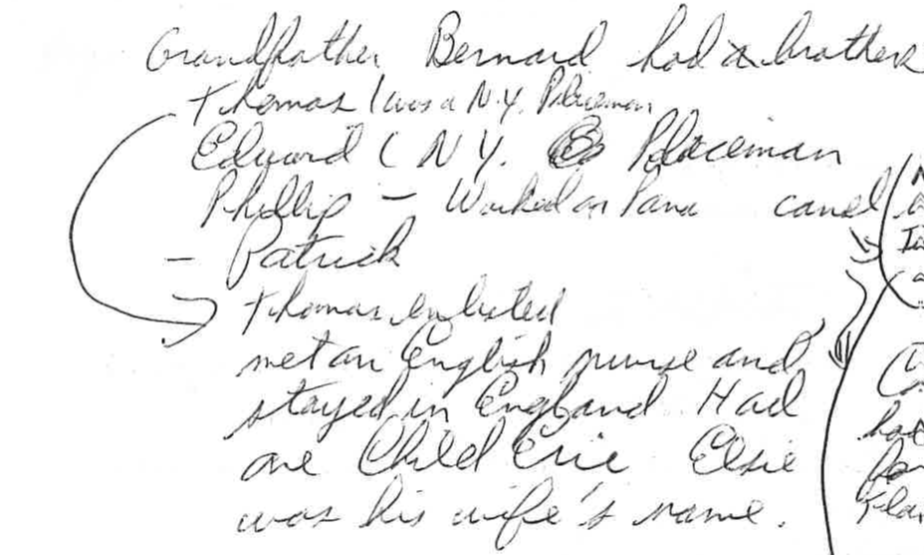 Grandfather Bernard had a brothers
Thomas (was a N.Y. Policeman
Edward ( N Y. Policeman
Phillip - Worked on Pana canal
- Patrick
Thomas enlisted
met an English nurse and
stayed in England. Had
one Child Eric Elsie
was his wife's name.